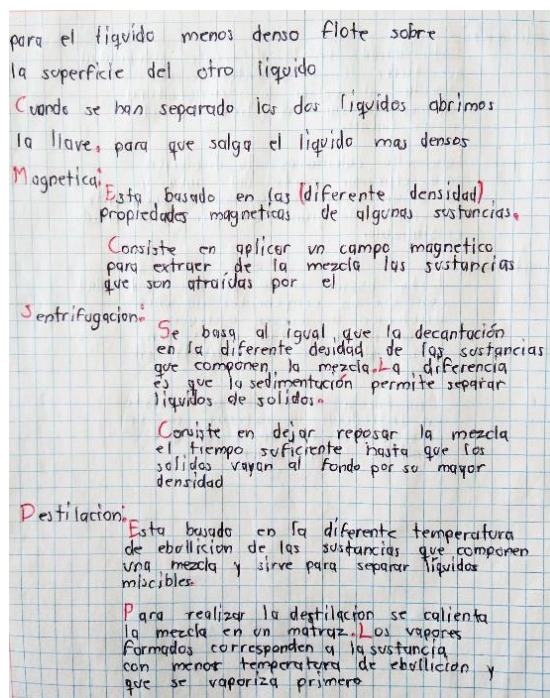 para el liquido menos denso flote sobre
la superficie del otro liquido
Cuando se han separado los dos liquidos abrimos
la llave, para que salga el liquido mas densos
Magnetica:
Esta basado en las (diferente densidad)
propiedades magneticas de algunas sustancias.
Consiste en aplicar un campo magnetico
para extraer de la mezcla las sustancias
que son atraídas por el
Sentrifugacion:
Se basa al igual que la decantación
en la diferente desidad de las sustancias
que componen la mezcla. La diferencia
es que la sedimentación permite separar
liquidos de solidos.
Consiste en dejar reposar la mezcla
el tiempo suficiente hasta que los
solidos vayan al fondo por su mayor
densidad
Destilacion:
Esta basado en la diferente temperatura
de ebollicion de las sustancias que componen
una mezcla y sirve para separar liquidos
miscibles.
Para realizar la destilacion se calienta
la mezcla en un matraz. Los vapores
formados corresponden a la sustancia
con menor temperatura de ebullicion y
que se vaporiza primero